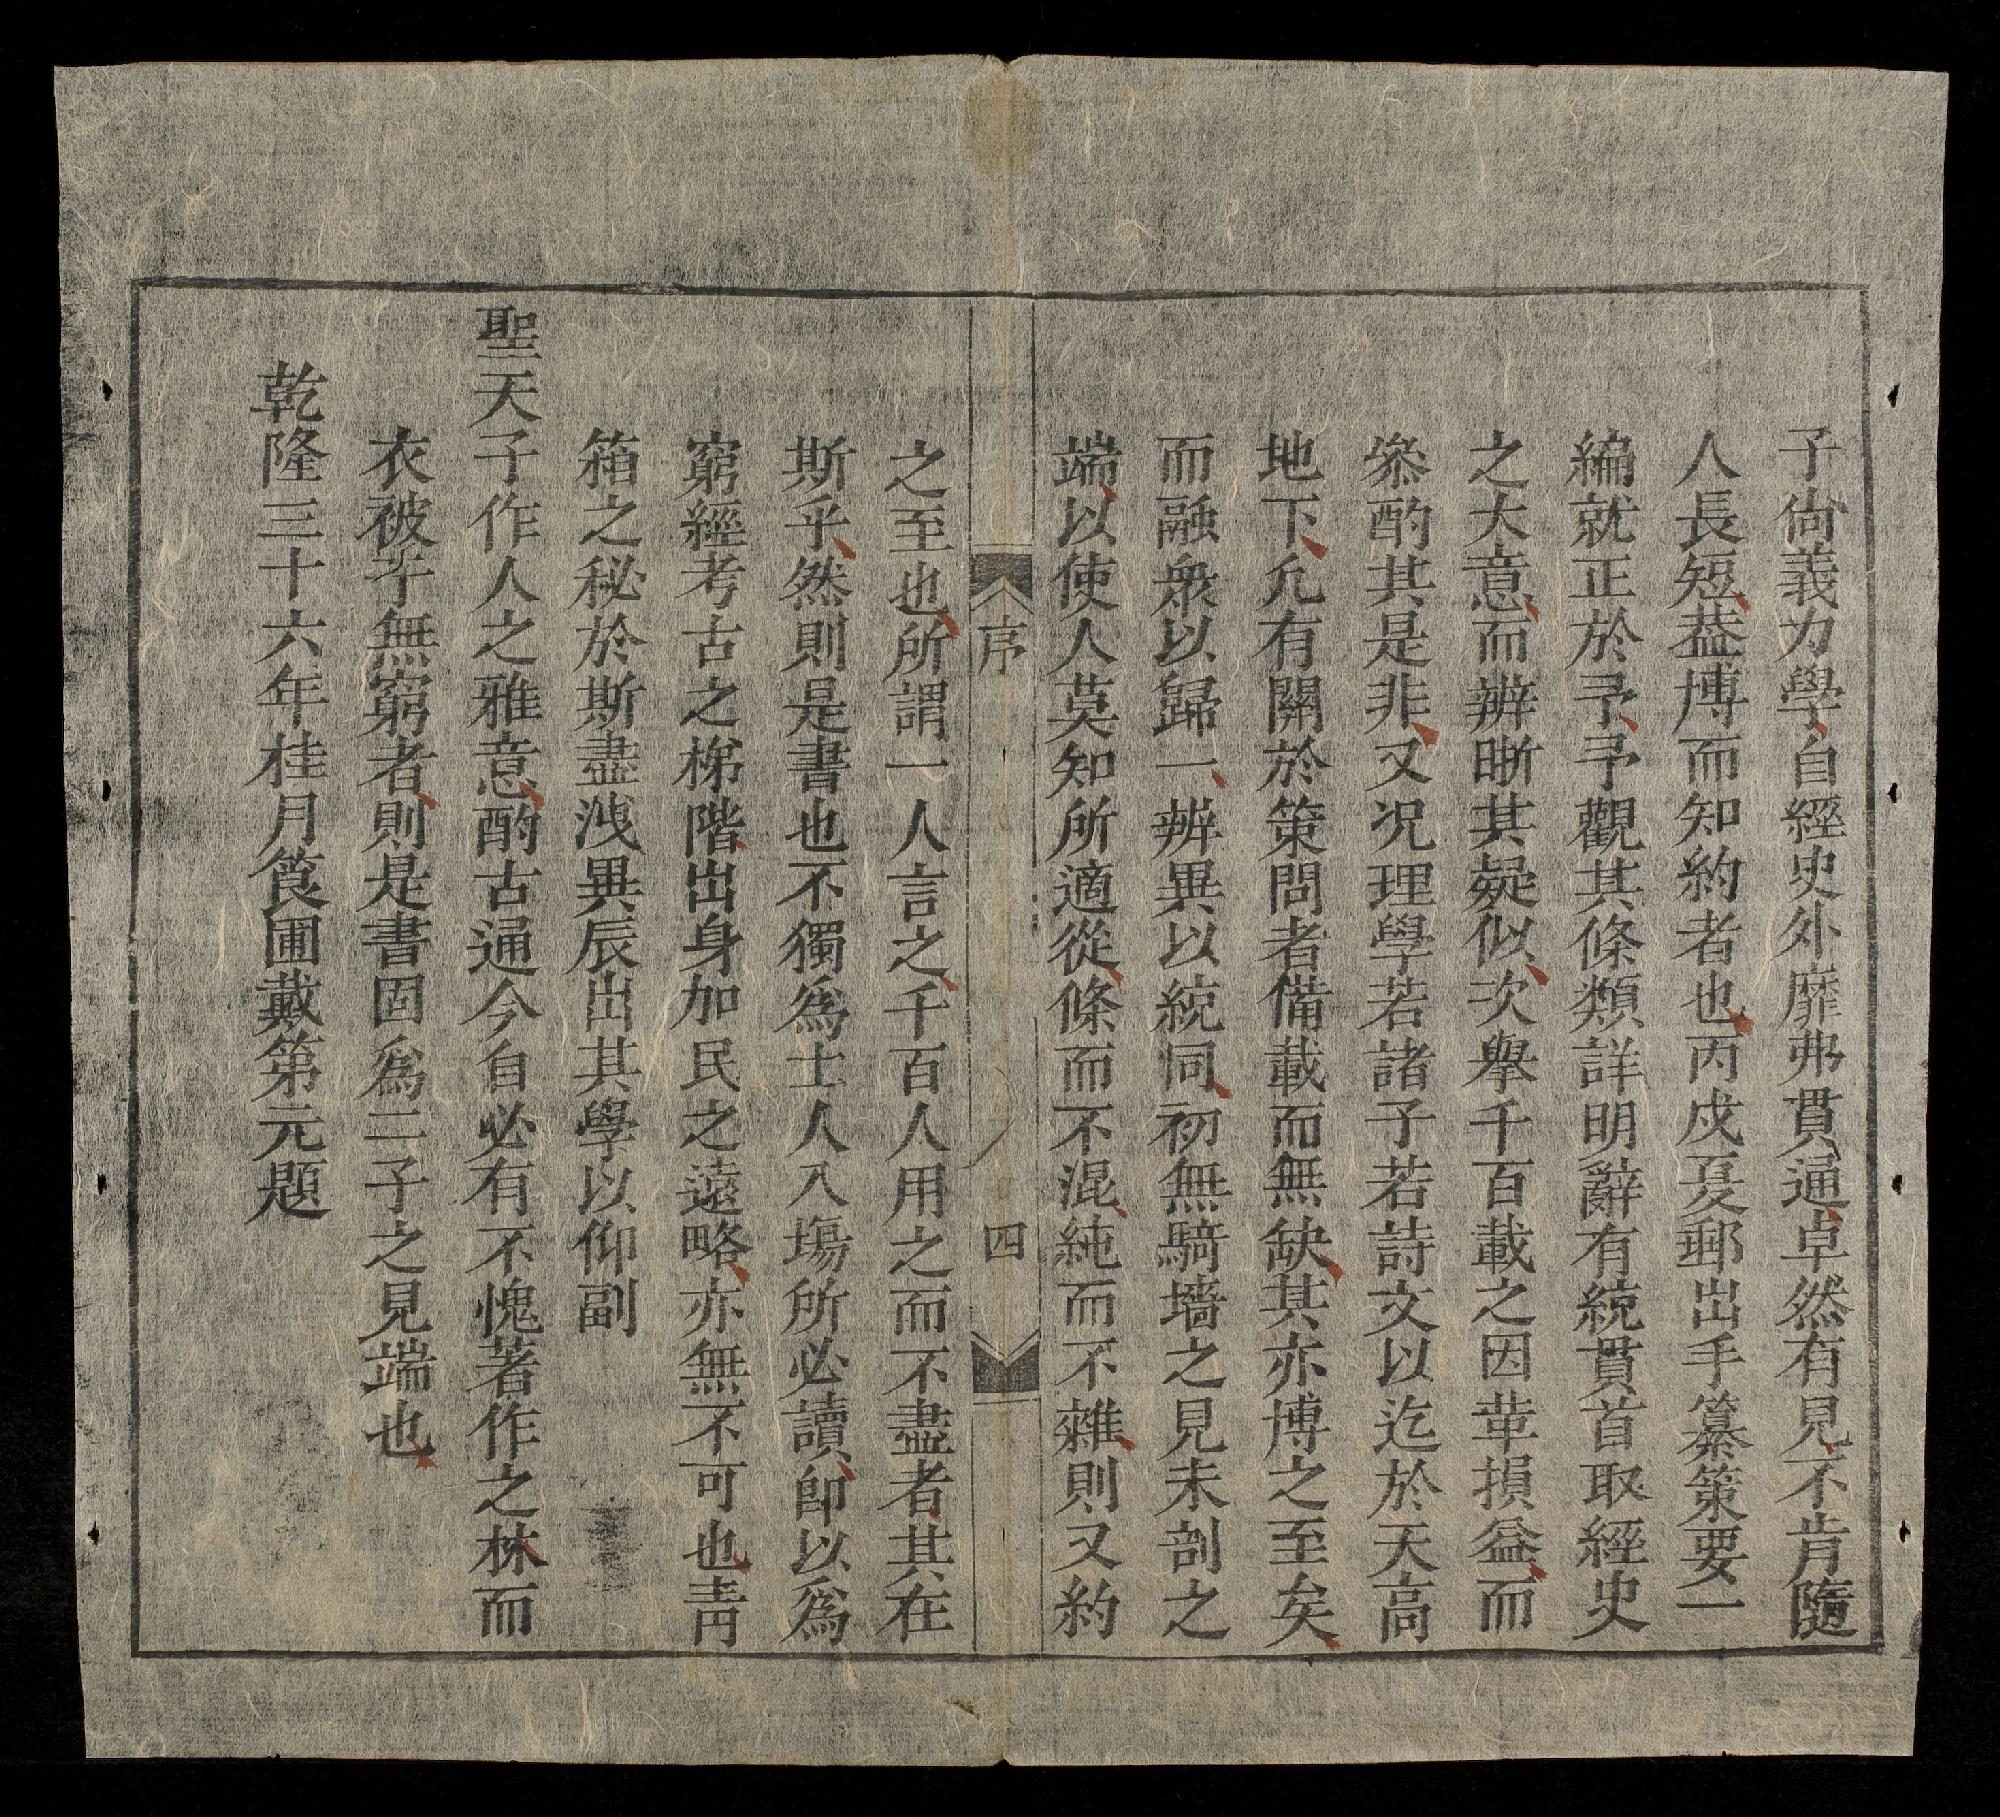 子尙義力學自經史外靡弗貫通卓然有見不肯隨
人長短葢博而知約者也丙戍夏郵出手纂策要一
編就正於予予觀其條類詳明辭有統貫首取經史
之大意而辨晰其疑似次舉千百載之因革損益而
叅酌其是非又况理學若諸子若詩文以迄於天高
地下凢有關於策問者備載而無缺其亦博之至矣
而融衆以歸一辨異以統同初無騎墻之見未剖之
端以使人莫知所適從條而不混純而不雜則又約
序
四
之至也所謂一人言之千百人用之而不盡者其在
斯乎然則是書也不獨為士人入塲所必讀卽以為
窮經考古之梯階出身加民之遠略亦無不可也靑
箱之秘於斯盡洩異辰出其學以仰副
聖天子作人之雅意酌古通今自必有不愧著作之林而
衣被于無窮者則是書固為二子之見端也
乾隆三十六年桂月篒圃戴第元題